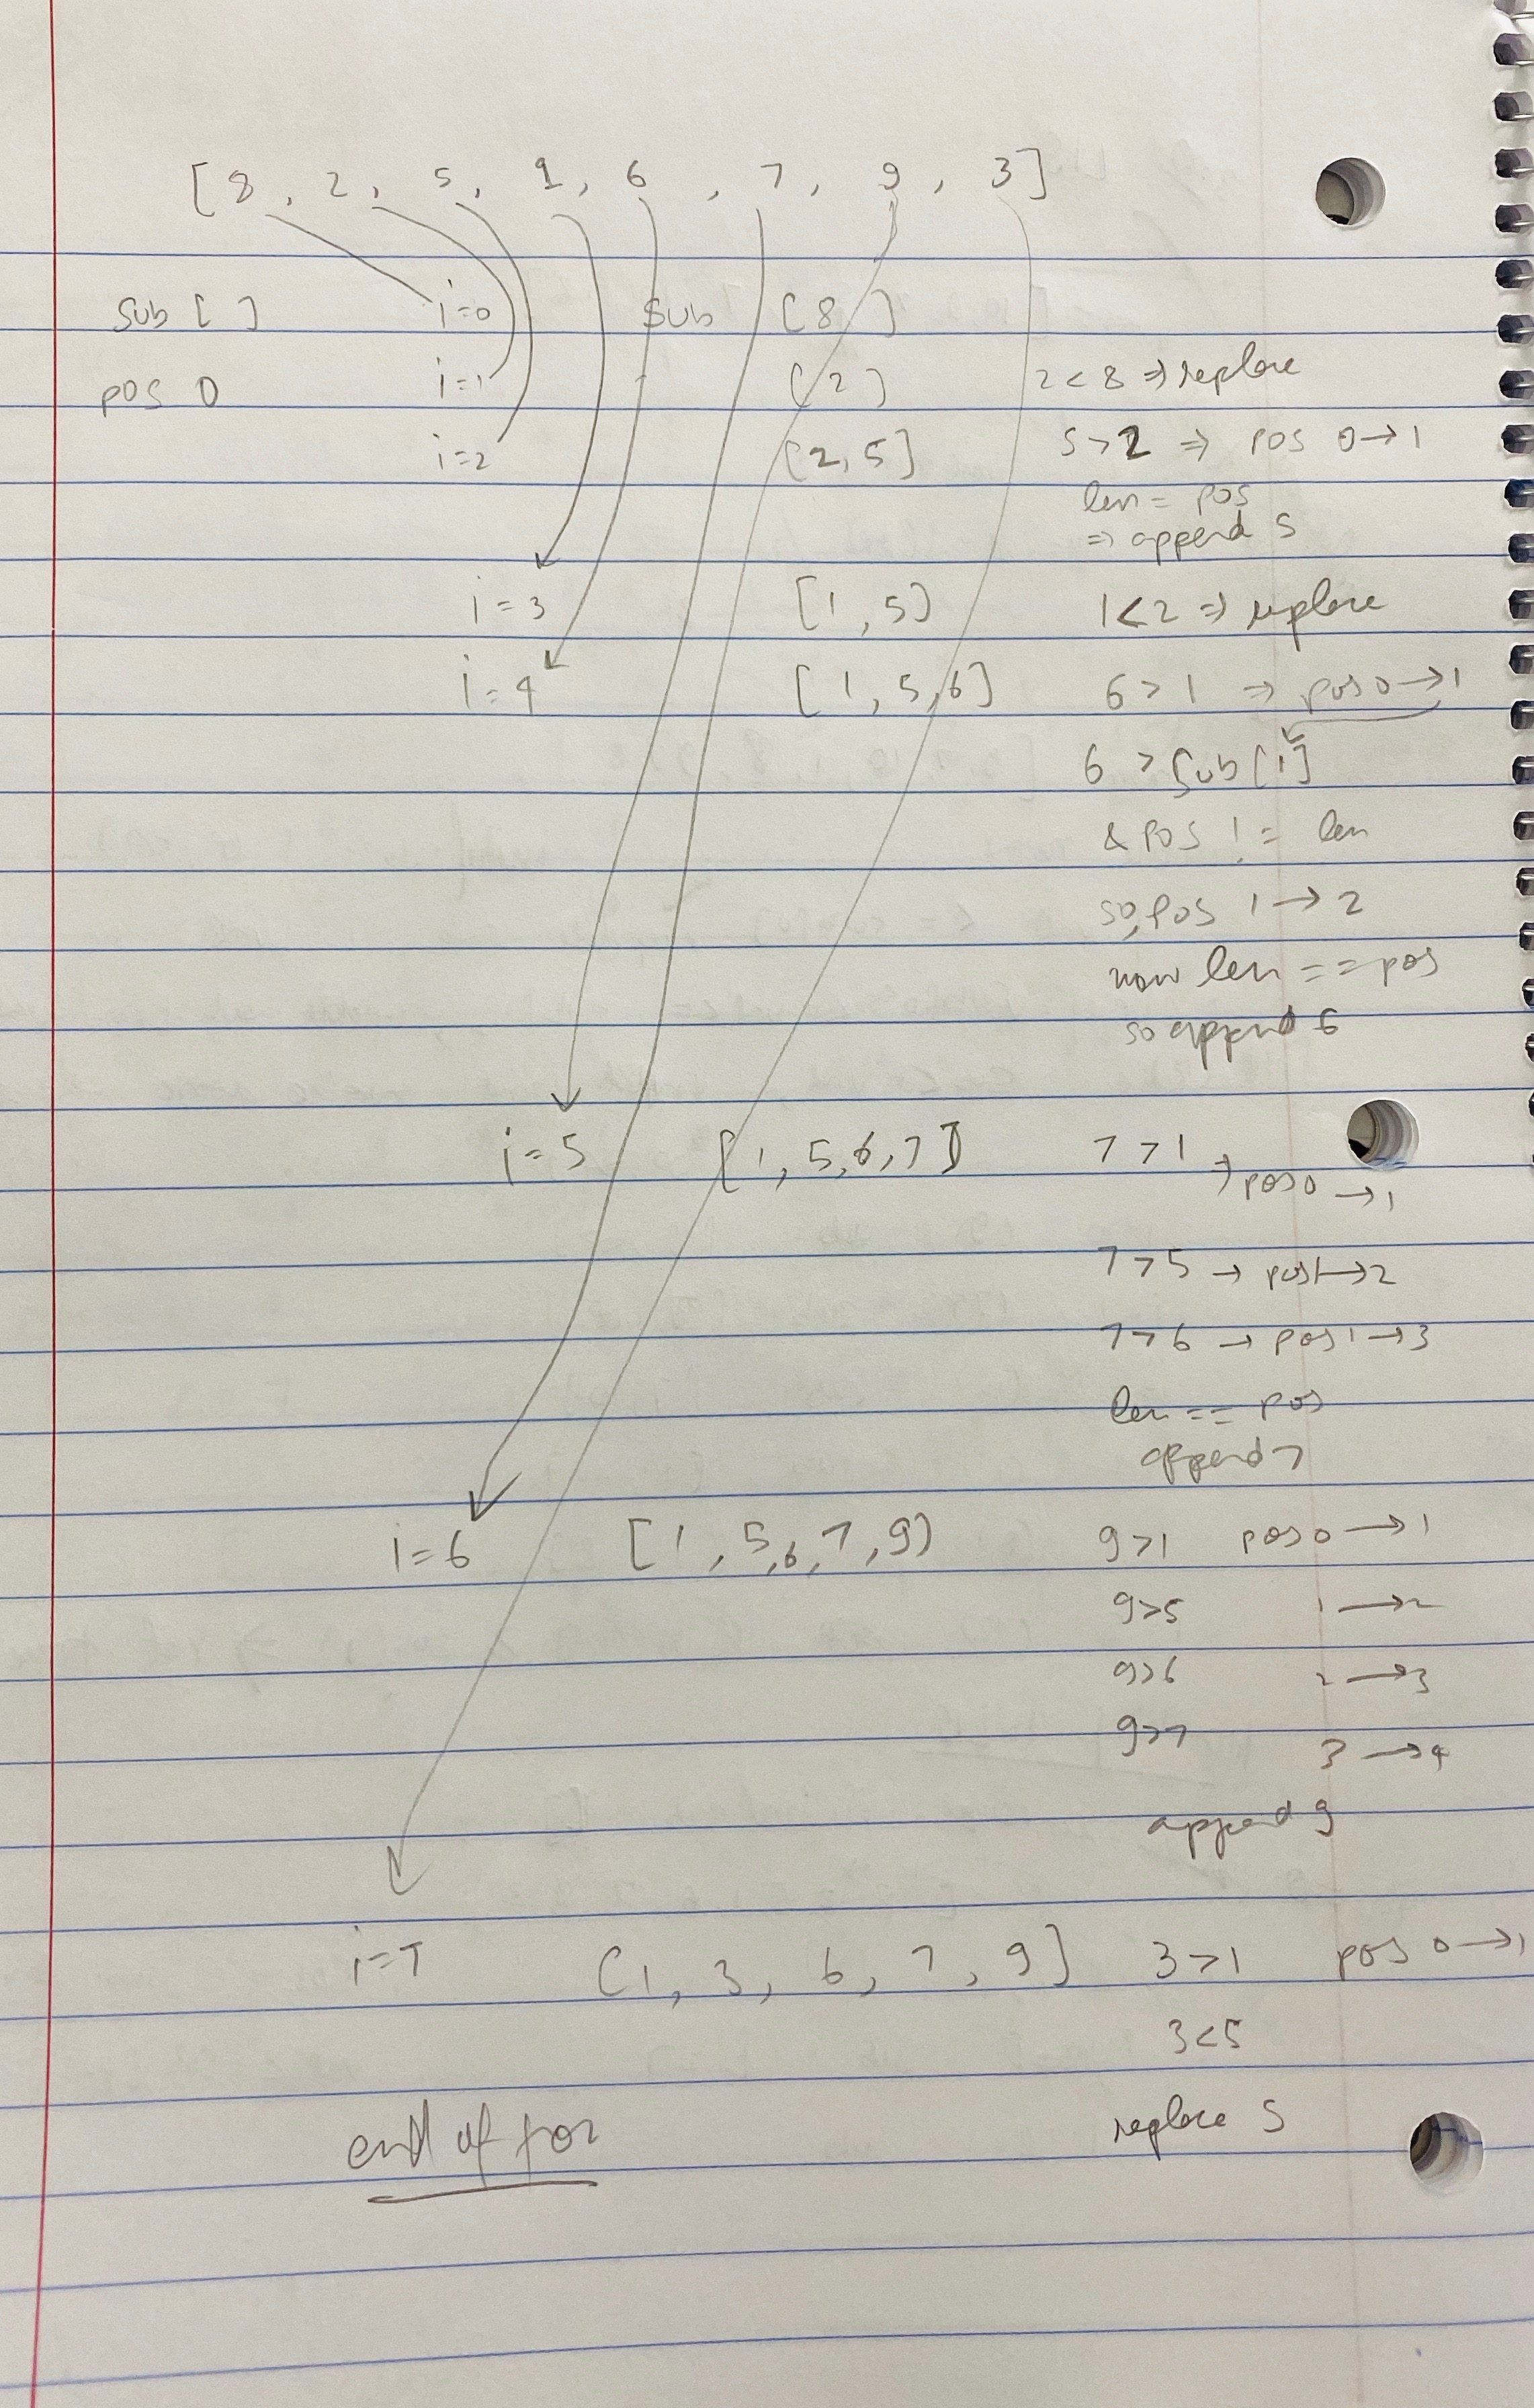 [8, 2, 5, 1, 6, 7, 9, 3]
sub [ ] i=0 sub [8]
pos 0 i=1 [2] 2<8 ⇒ replace
i=2 [2,5] 5>2 ⇒ pos 0→1
len = pos
⇒ append 5
i=3 [1,5] 1<2 ⇒ replace
i=4 [1,5,6] 6>1 ⇒ pos 0→1
6 > sub[1]
& pos != len
so, pos 1→2
now len == pos
so append 6
i=5 [1,5,6,7] 7>1 ⇒ pos 0→1
7>5 → pos 1→2
7>6 → pos 1→3
len == pos
append 7
i=6 [1,5,6,7,9) 9>1 pos 0→1
9>5 1→2
9>6 2→3
9>7 3→4
append 9
i=7 [1, 3, 6, 7, 9] 3>1 pos 0→1
3<5
end of for replace 5